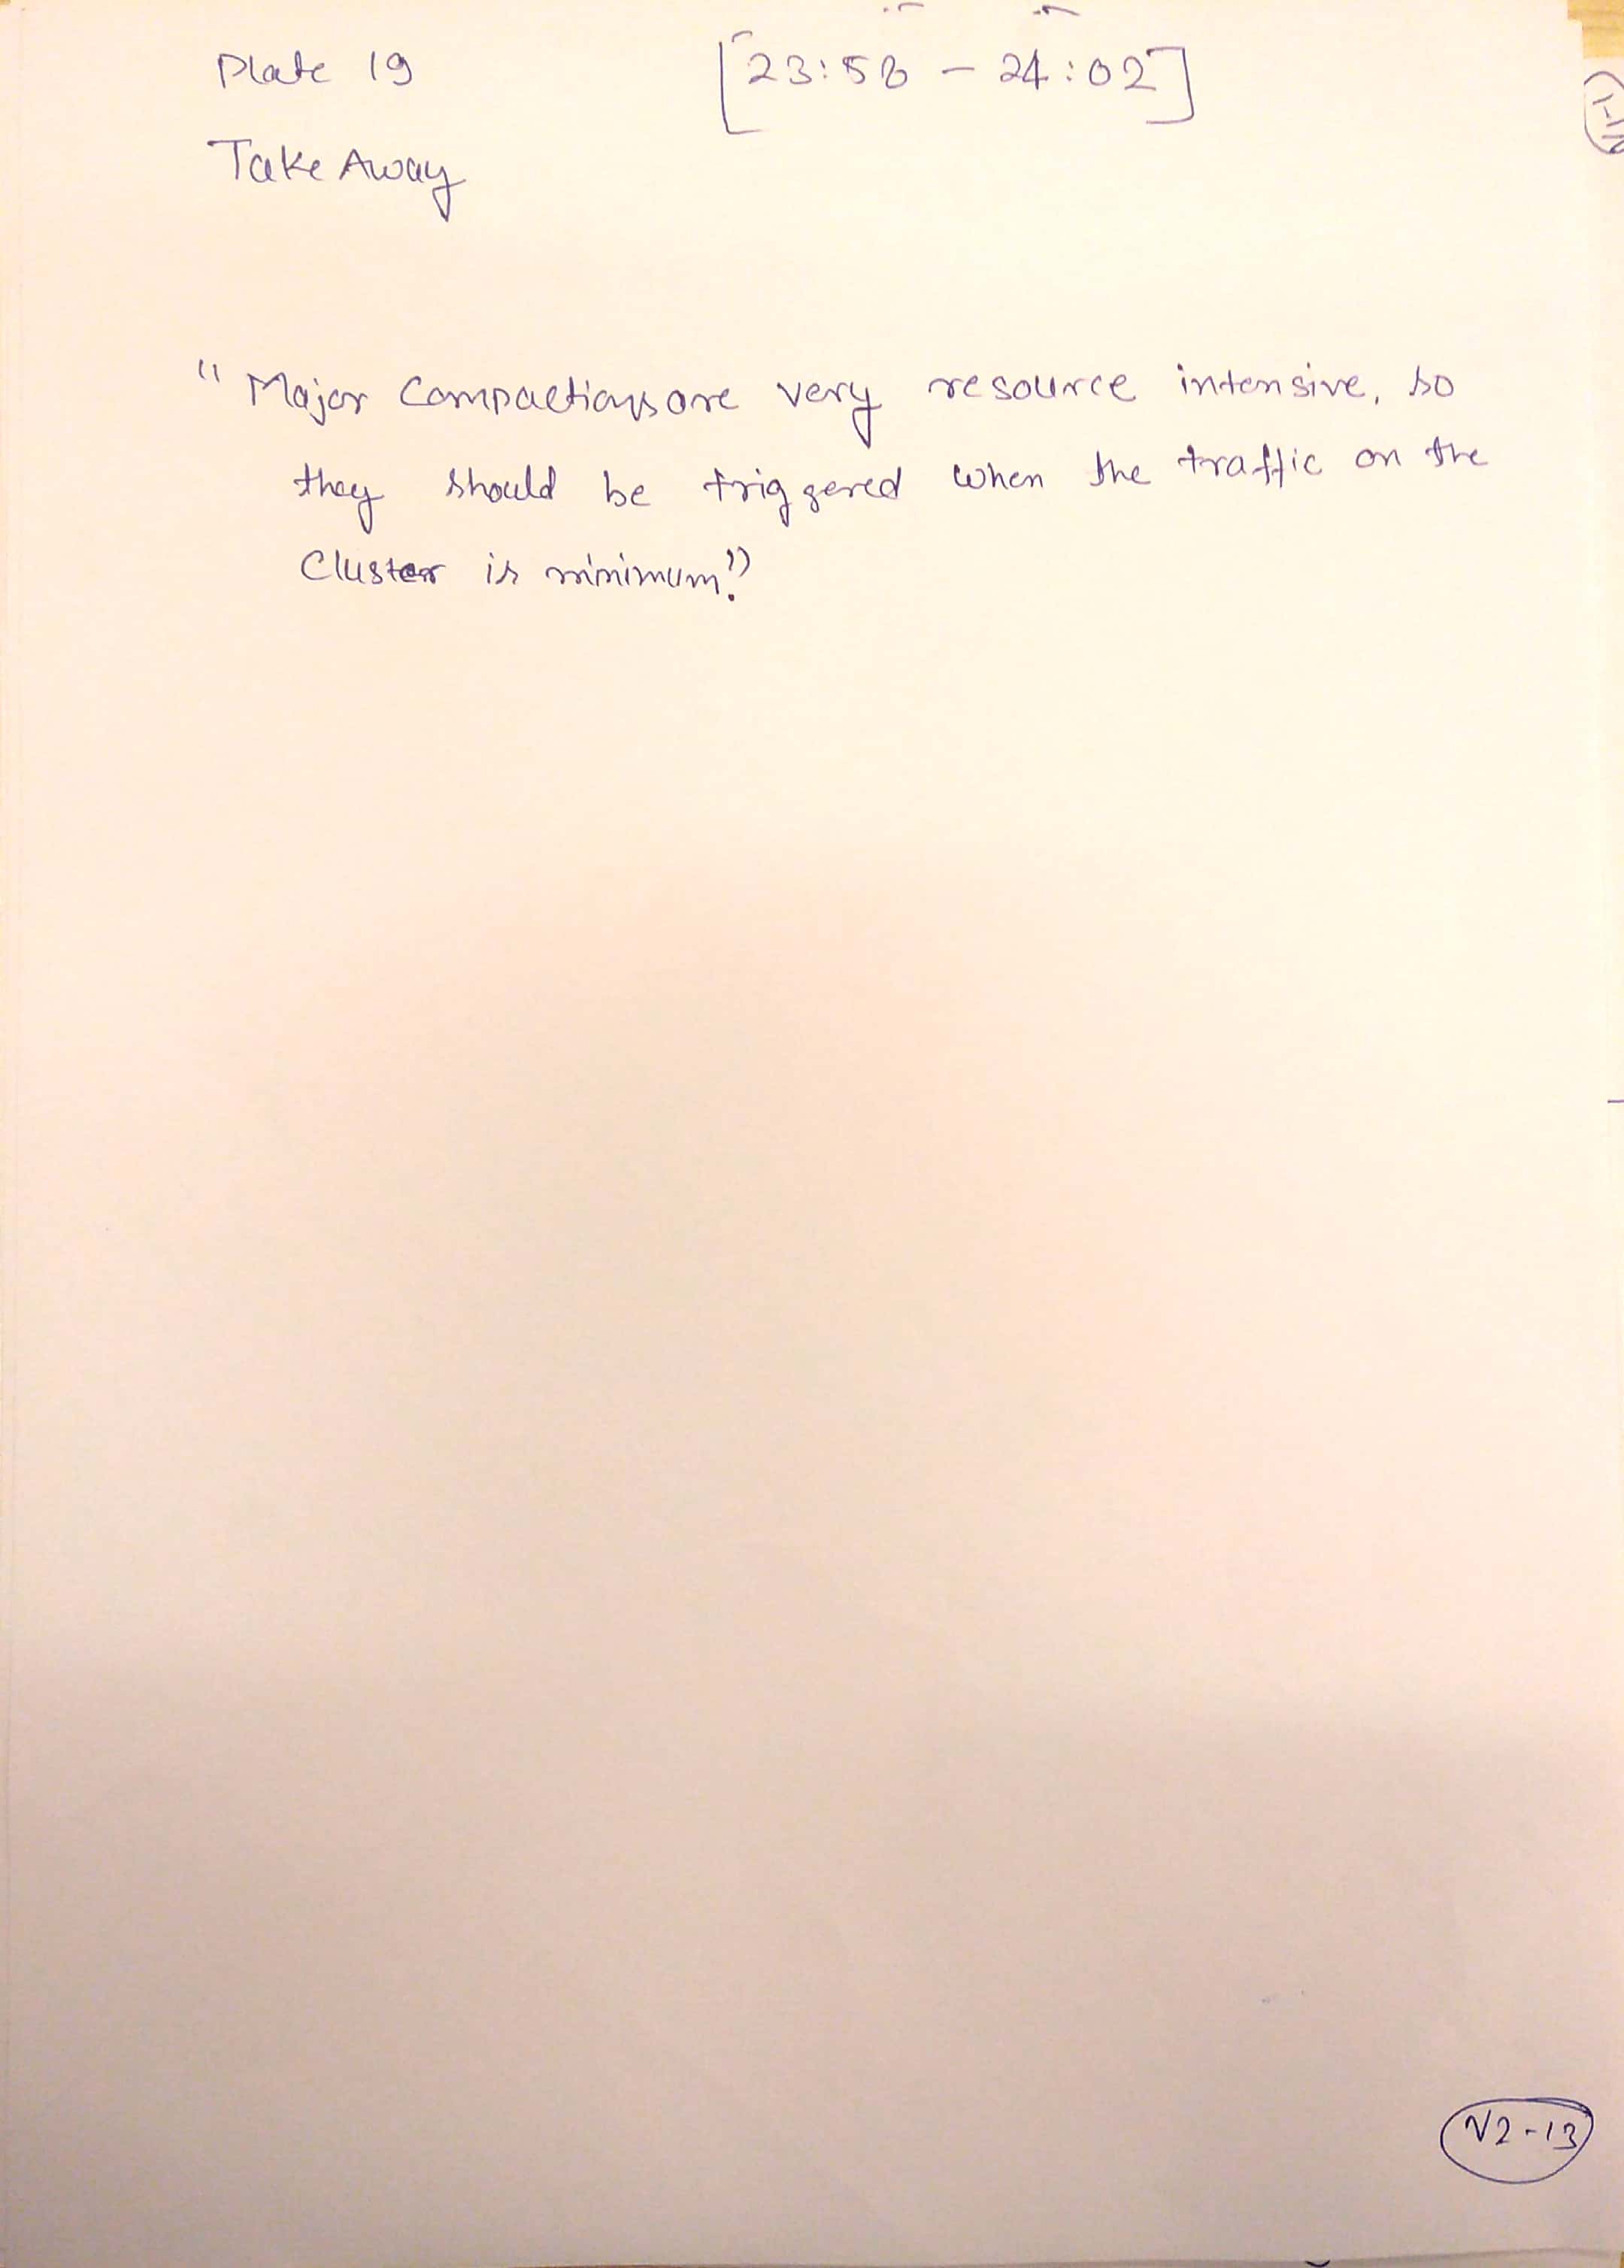 Plate 19 [23:58 - 24:02]
Take Away
"Major Compactions are very resource intensive, so
they should be triggered when the traffic on the
Cluster is minimum."
V2-13